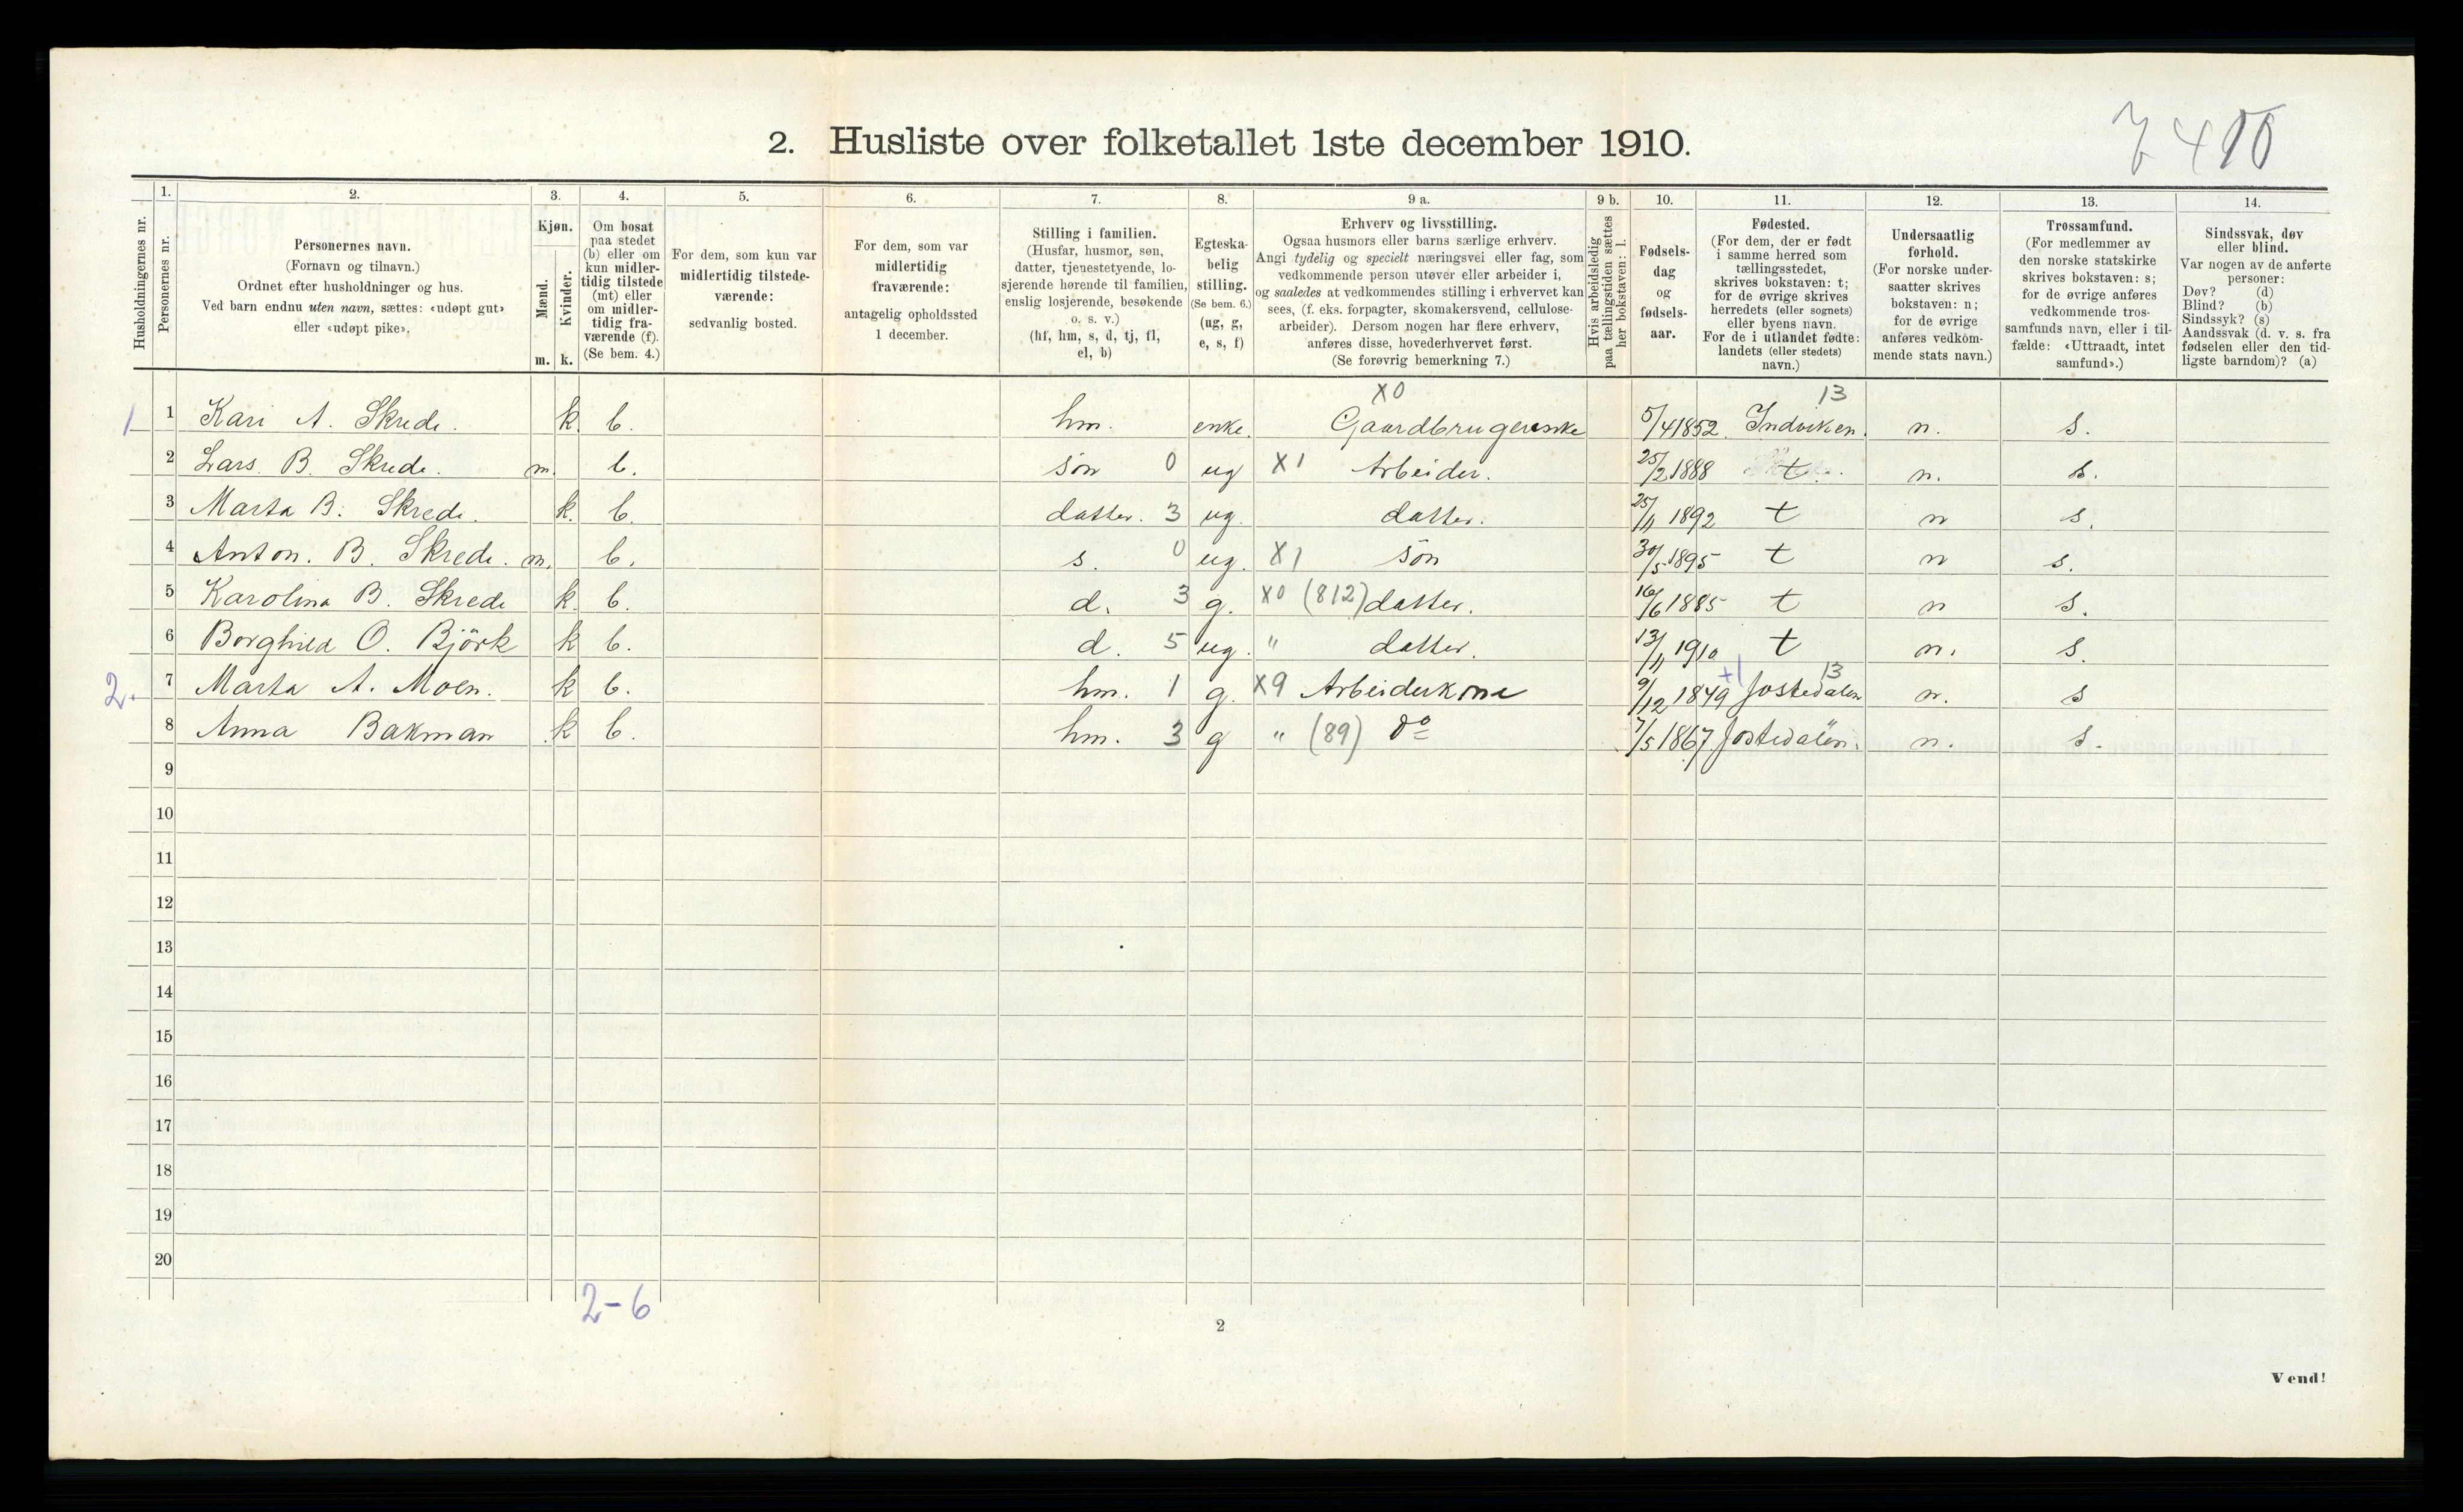 7 4 10
2. Husliste over folketallet 1ste december 1910.
Husholdningernes nr.
1. Personernes nr.
2. Personernes navn.
(Fornavn og tilnavn.)
Ordnet efter husholdninger og hus.
Ved barn endnu uten navn, sættes: «udøpt gut»
eller «udøpt pike».
3. Kjøn.
Mænd. m.
Kvinder. k.
4. Om bosat
paa stedet
(b) eller om
kun midler-
tidig tilstede
(mt) eller
om midler-
tidig fra-
værende (f).
(Se bem. 4.)
5. For dem, som kun var
midlertidig tilstede-
værende:
sedvanlig bosted.
6. For dem, som var
midlertidig
fraværende:
antagelig opholdssted
1 december.
7. Stilling i familien.
(Husfar, husmor, søn,
datter, tjenestetyende, lo-
sjerende hørende til familien,
enslig losjerende, besøkende
o. s. v.)
(hf, hm, s, d, tj, fl,
el, b)
8. Egteska-
belig
stilling.
(Se bem. 6.)
(ug, g,
e, s, f)
9 a. Erhverv og livsstilling.
Ogsaa husmors eller barns særlige erhverv.
Angi tydelig og specielt næringsvei eller fag, som
vedkommende person utøver eller arbeider i,
og saaledes at vedkommendes stilling i erhvervet kan
sees, (f. eks. forpagter, skomakersvend, cellulose-
arbeider). Dersom nogen har flere erhverv,
anføres disse, hovederhvervet først.
(Se forøvrig bemerkning 7.)
9 b. Hvis arbeidsledig
paa tællingstiden sættes
her bokstaven: l.
10. Fødsels-
dag
og
fødsels-
aar.
11. Fødested.
(For dem, der er født
i samme herred som
tællingsstedet,
skrives bokstaven: t;
for de øvrige skrives
herredets (eller sognets)
eller byens navn.
For de i utlandet fødte:
landets (eller stedets)
navn.)
12. Undersaatlig
forhold.
(For norske under-
saatter skrives
bokstaven: n;
for de øvrige
anføres vedkom-
mende stats navn.)
13. Trossamfund.
(For medlemmer av
den norske statskirke
skrives bokstaven: s;
for de øvrige anføres
vedkommende tros-
samfunds navn, eller i til-
fælde: «Uttraadt, intet
samfund».)
14. Sindssvak, døv
eller blind.
Var nogen av de anførte
personer:
Døv? (d)
Blind? (b)
Sindssyk? (s)
Aandssvak (d. v. s. fra
fødselen eller den tid-
ligste barndom)? (a)
X0 13
1 1 Kari A. Skrede. k. b. hm. enke. Gaardbrugerenke 5/4 1852 Indviken. n. s.
2 Lars B. Skrede. m. b. søn 0 ug X1 Arbeider. 25/2 1888 t. n. s.
3 Marta B. Skrede. k. b. datter. 3 ug. datter. 25/11 1892 t n s.
4 Anton. B. Skrede. m. b. s. 0 ug. X1 søn 30/5 1895 t n s.
5 Karolina B. Skrede k. b. d. 3 g. X0 (812) datter. 16/6 1885 t n s.
6 Borghild O. Björk k b. d. 5 ug. " datter. 13/11 1910 t n. s.
+1 13
2. 7 Marta A. Moen. k b. hm. 1 g. X9 Arbeiderkone 9/12 1849 Jostedalen n. s
8 Anna Bakman k b. hm. 3 g " (89) do 7/5 1867 Jostedalen. n. s.
9
10
11
12
13
14
15
16
17
18
19
20
2-6
2
Vend!